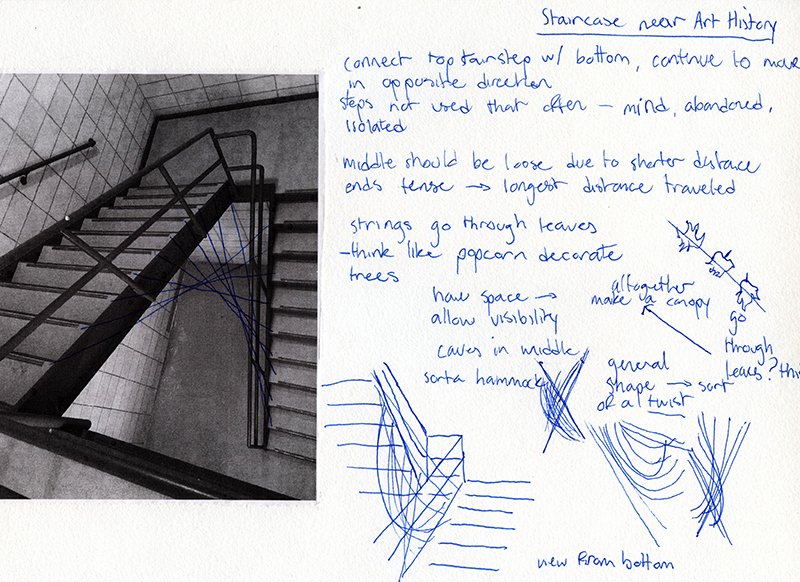 Staircase near Art History
connect top stairstep w/ bottom, continue to move
in opposite direction
steps not used that often – mind, abandoned,
isolated
middle should be loose due to shorter distance
ends tense → longest distance traveled
strings go through leaves
-think like popcorn decorate
trees
have space →
allow visibility
altogether
make a canopy
go
through
leaves? thi
caves in middle
sorta hammock
general
shape → sort
of a twist
view from bottom